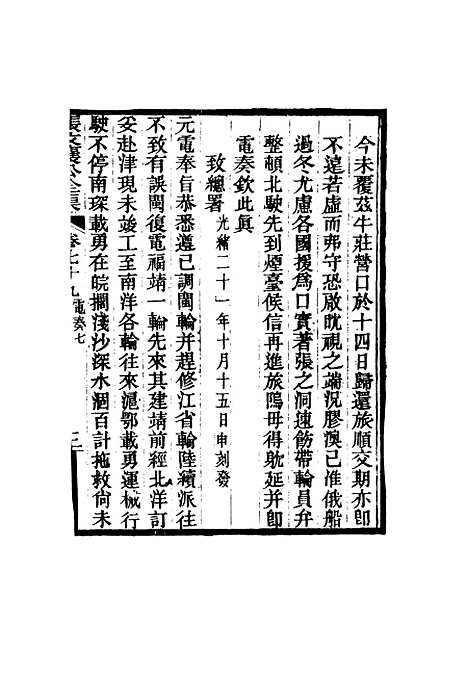 今未覆茲牛莊營口於十四日歸還旅順交期亦卽
不遠若虛而弗守恐啟眈視之端況膠澳已准俄船
過冬尤慮各國援爲口實著張之洞速飭帶輪員弁
整頓北駛先到煙臺候信再進旅隝毋得躭延并卽
電奏欽此眞
致總署光緒二十一年十月十五日申刻發
元電奉旨恭悉遵已調閩輪并趕修江省輪陸續派往
不致有誤閩復電福靖一輪先來其建靖前經北洋訂
妥赴津現未竣工至南洋各輪往來滬鄂載勇運械行
駛不停南琛載勇在皖擱淺沙深水涸百計拖救尙未
張文襄公全集 卷七十九 電奏七 二